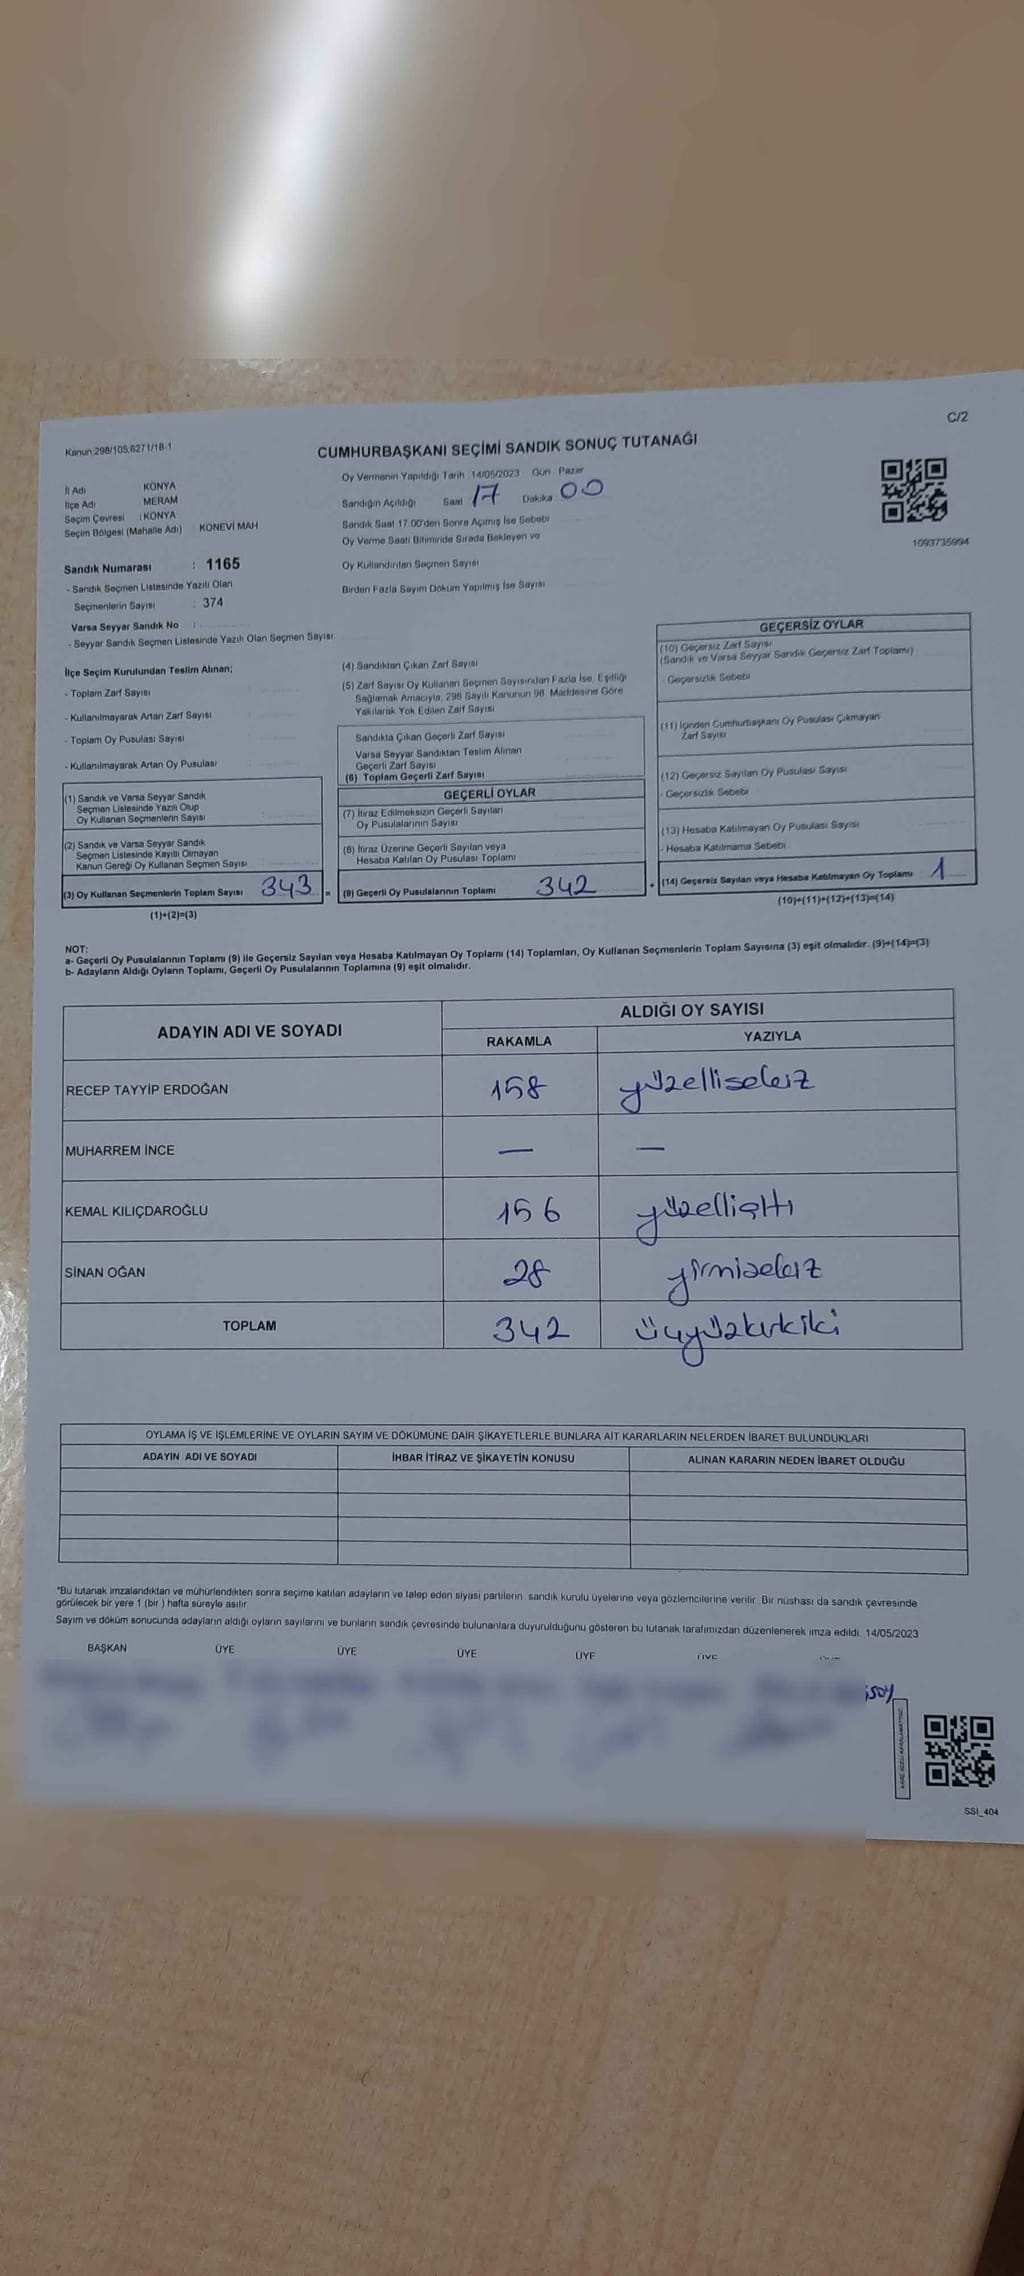 C/2
Kanun:298/105,6271/18-1
CUMHURBAŞKANI SEÇİMİ SANDIK SONUÇ TUTANAĞI
İl Adı KONYA
İlçe Adı MERAM
Seçim Çevresi : KONYA
Seçim Bölgesi (Mahalle Adı) KONEVİ MAH
Oy Vermenin Yapıldığı Tarih 14/05/2023 Gün Pazar
Sandığın Açıldığı Saat 17 Dakika 00
Sandık Saat 17:00'den Sonra Açılmış İse Sebebi
Oy Verme Saati Bitiminde Sırada Bekleyen ve
Oy Kullandırılan Seçmen Sayısı
Birden Fazla Sayım Döküm Yapılmış İse Sayısı
1093735994
Sandık Numarası : 1165
- Sandık Seçmen Listesinde Yazılı Olan
Seçmenlerin Sayısı : 374
Varsa Seyyar Sandık No :
- Seyyar Sandık Seçmen Listesinde Yazılı Olan Seçmen Sayısı:
İlçe Seçim Kurulundan Teslim Alınan;
- Toplam Zarf Sayısı
- Kullanılmayarak Artan Zarf Sayısı
- Toplam Oy Pusulası Sayısı
- Kullanılmayarak Artan Oy Pusulası
(1) Sandık ve Varsa Seyyar Sandık
Seçmen Listesinde Yazılı Olup
Oy Kullanan Seçmenlerin Sayısı
(2) Sandık ve Varsa Seyyar Sandık
Seçmen Listesinde Kayıtlı Olmayan
Kanun Gereği Oy Kullanan Seçmen Sayısı
(3) Oy Kullanan Seçmenlerin Toplam Sayısı 343 =
(1)+(2)=(3)
(4) Sandıktan Çıkan Zarf Sayısı
(5) Zarf Sayısı Oy Kullanan Seçmen Sayısından Fazla İse, Eşitliği
Sağlamak Amacıyla, 298 Sayılı Kanunun 98. Maddesine Göre
Yakılarak Yok Edilen Zarf Sayısı
Sandıkta Çıkan Geçerli Zarf Sayısı
Varsa Seyyar Sandıktan Teslim Alınan
Geçerli Zarf Sayısı
(6) Toplam Geçerli Zarf Sayısı
GEÇERLİ OYLAR
(7) İtiraz Edilmeksizin Geçerli Sayılan
Oy Pusulalarının Sayısı
(8) İtiraz Üzerine Geçerli Sayılan veya
Hesaba Katılan Oy Pusulası Toplamı
(9) Geçerli Oy Pusulalarının Toplamı 342 +
GEÇERSİZ OYLAR
(10) Geçersiz Zarf Sayısı
(Sandık ve Varsa Seyyar Sandık Geçersiz Zarf Toplamı)
- Geçersizlik Sebebi
(11) İçinden Cumhurbaşkanı Oy Pusulası Çıkmayan
Zarf Sayısı
(12) Geçersiz Sayılan Oy Pusulası Sayısı
- Geçersizlik Sebebi
(13) Hesaba Katılmayan Oy Pusulası Sayısı
- Hesaba Katılmama Sebebi
(14) Geçersiz Sayılan veya Hesaba Katılmayan Oy Toplamı 1
(10)+(11)+(12)+(13)=(14)
NOT:
a- Geçerli Oy Pusulalarının Toplamı (9) ile Geçersiz Sayılan veya Hesaba Katılmayan Oy Toplamı (14) Toplamları, Oy Kullanan Seçmenlerin Toplam Sayısına (3) eşit olmalıdır. (9)+(14)=(3)
b- Adayların Aldığı Oyların Toplamı, Geçerli Oy Pusulalarının Toplamına (9) eşit olmalıdır.
ADAYIN ADI VE SOYADI ALDIĞI OY SAYISI
RAKAMLA YAZIYLA
RECEP TAYYİP ERDOĞAN 158 yüzellisekiz
MUHARREM İNCE — —
KEMAL KILIÇDAROĞLU 156 yüzellialtı
SİNAN OĞAN 28 yirmisekiz
TOPLAM 342 üçyüzkırkiki
OYLAMA İŞ VE İŞLEMLERİNE VE OYLARIN SAYIM VE DÖKÜMÜNE DAİR ŞİKAYETLERLE BUNLARA AİT KARARLARIN NELERDEN İBARET BULUNDUKLARI
ADAYIN ADI VE SOYADI İHBAR İTİRAZ VE ŞİKAYETİN KONUSU ALINAN KARARIN NEDEN İBARET OLDUĞU
*Bu tutanak imzalandıktan ve mühürlendikten sonra seçime katılan adayların ve talep eden siyasi partilerin sandık kurulu üyelerine veya gözlemcilerine verilir. Bir nüshası da sandık çevresinde
görülecek bir yere 1 (bir ) hafta süreyle asılır.
Sayım ve döküm sonucunda adayların aldığı oyların sayılarını ve bunların sandık çevresinde bulunanlara duyurulduğunu gösteren bu tutanak tarafımızdan düzenlenerek imza edildi. 14/05/2023
BAŞKAN ÜYE ÜYE ÜYE ÜYE ÜYE
SSI_404